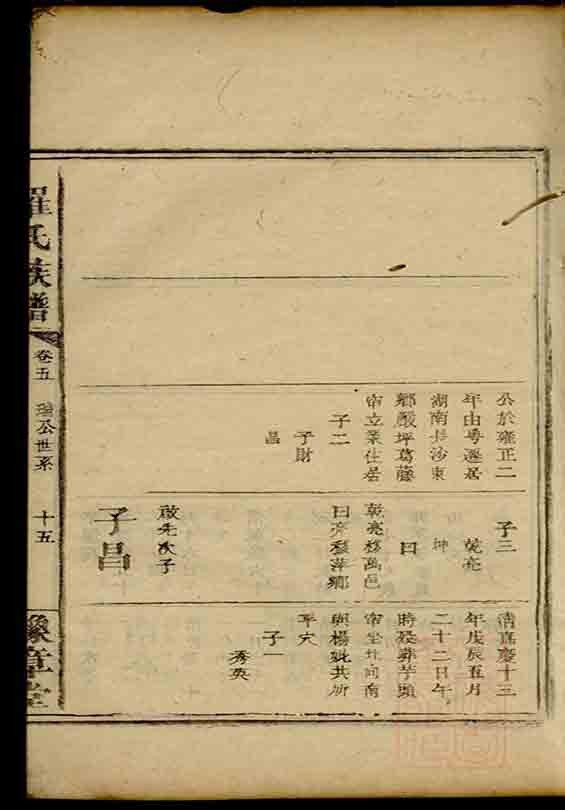 公於雍正二
年由粵遷居
湖南長沙東
鄉嚴坪葛藤
窩立業住居
子二
子財
昌
子三
乾亮
坤
日
乾亮移萬邑
日亮移萍鄉
敢先次子
子昌
清嘉慶十三
年戊辰五月
二十二日午
時歿葬芋頭
窩坐北向南
與楊妣共所
平穴
子一
秀英
羅氏族譜
卷五
公世系
十五
豫章堂